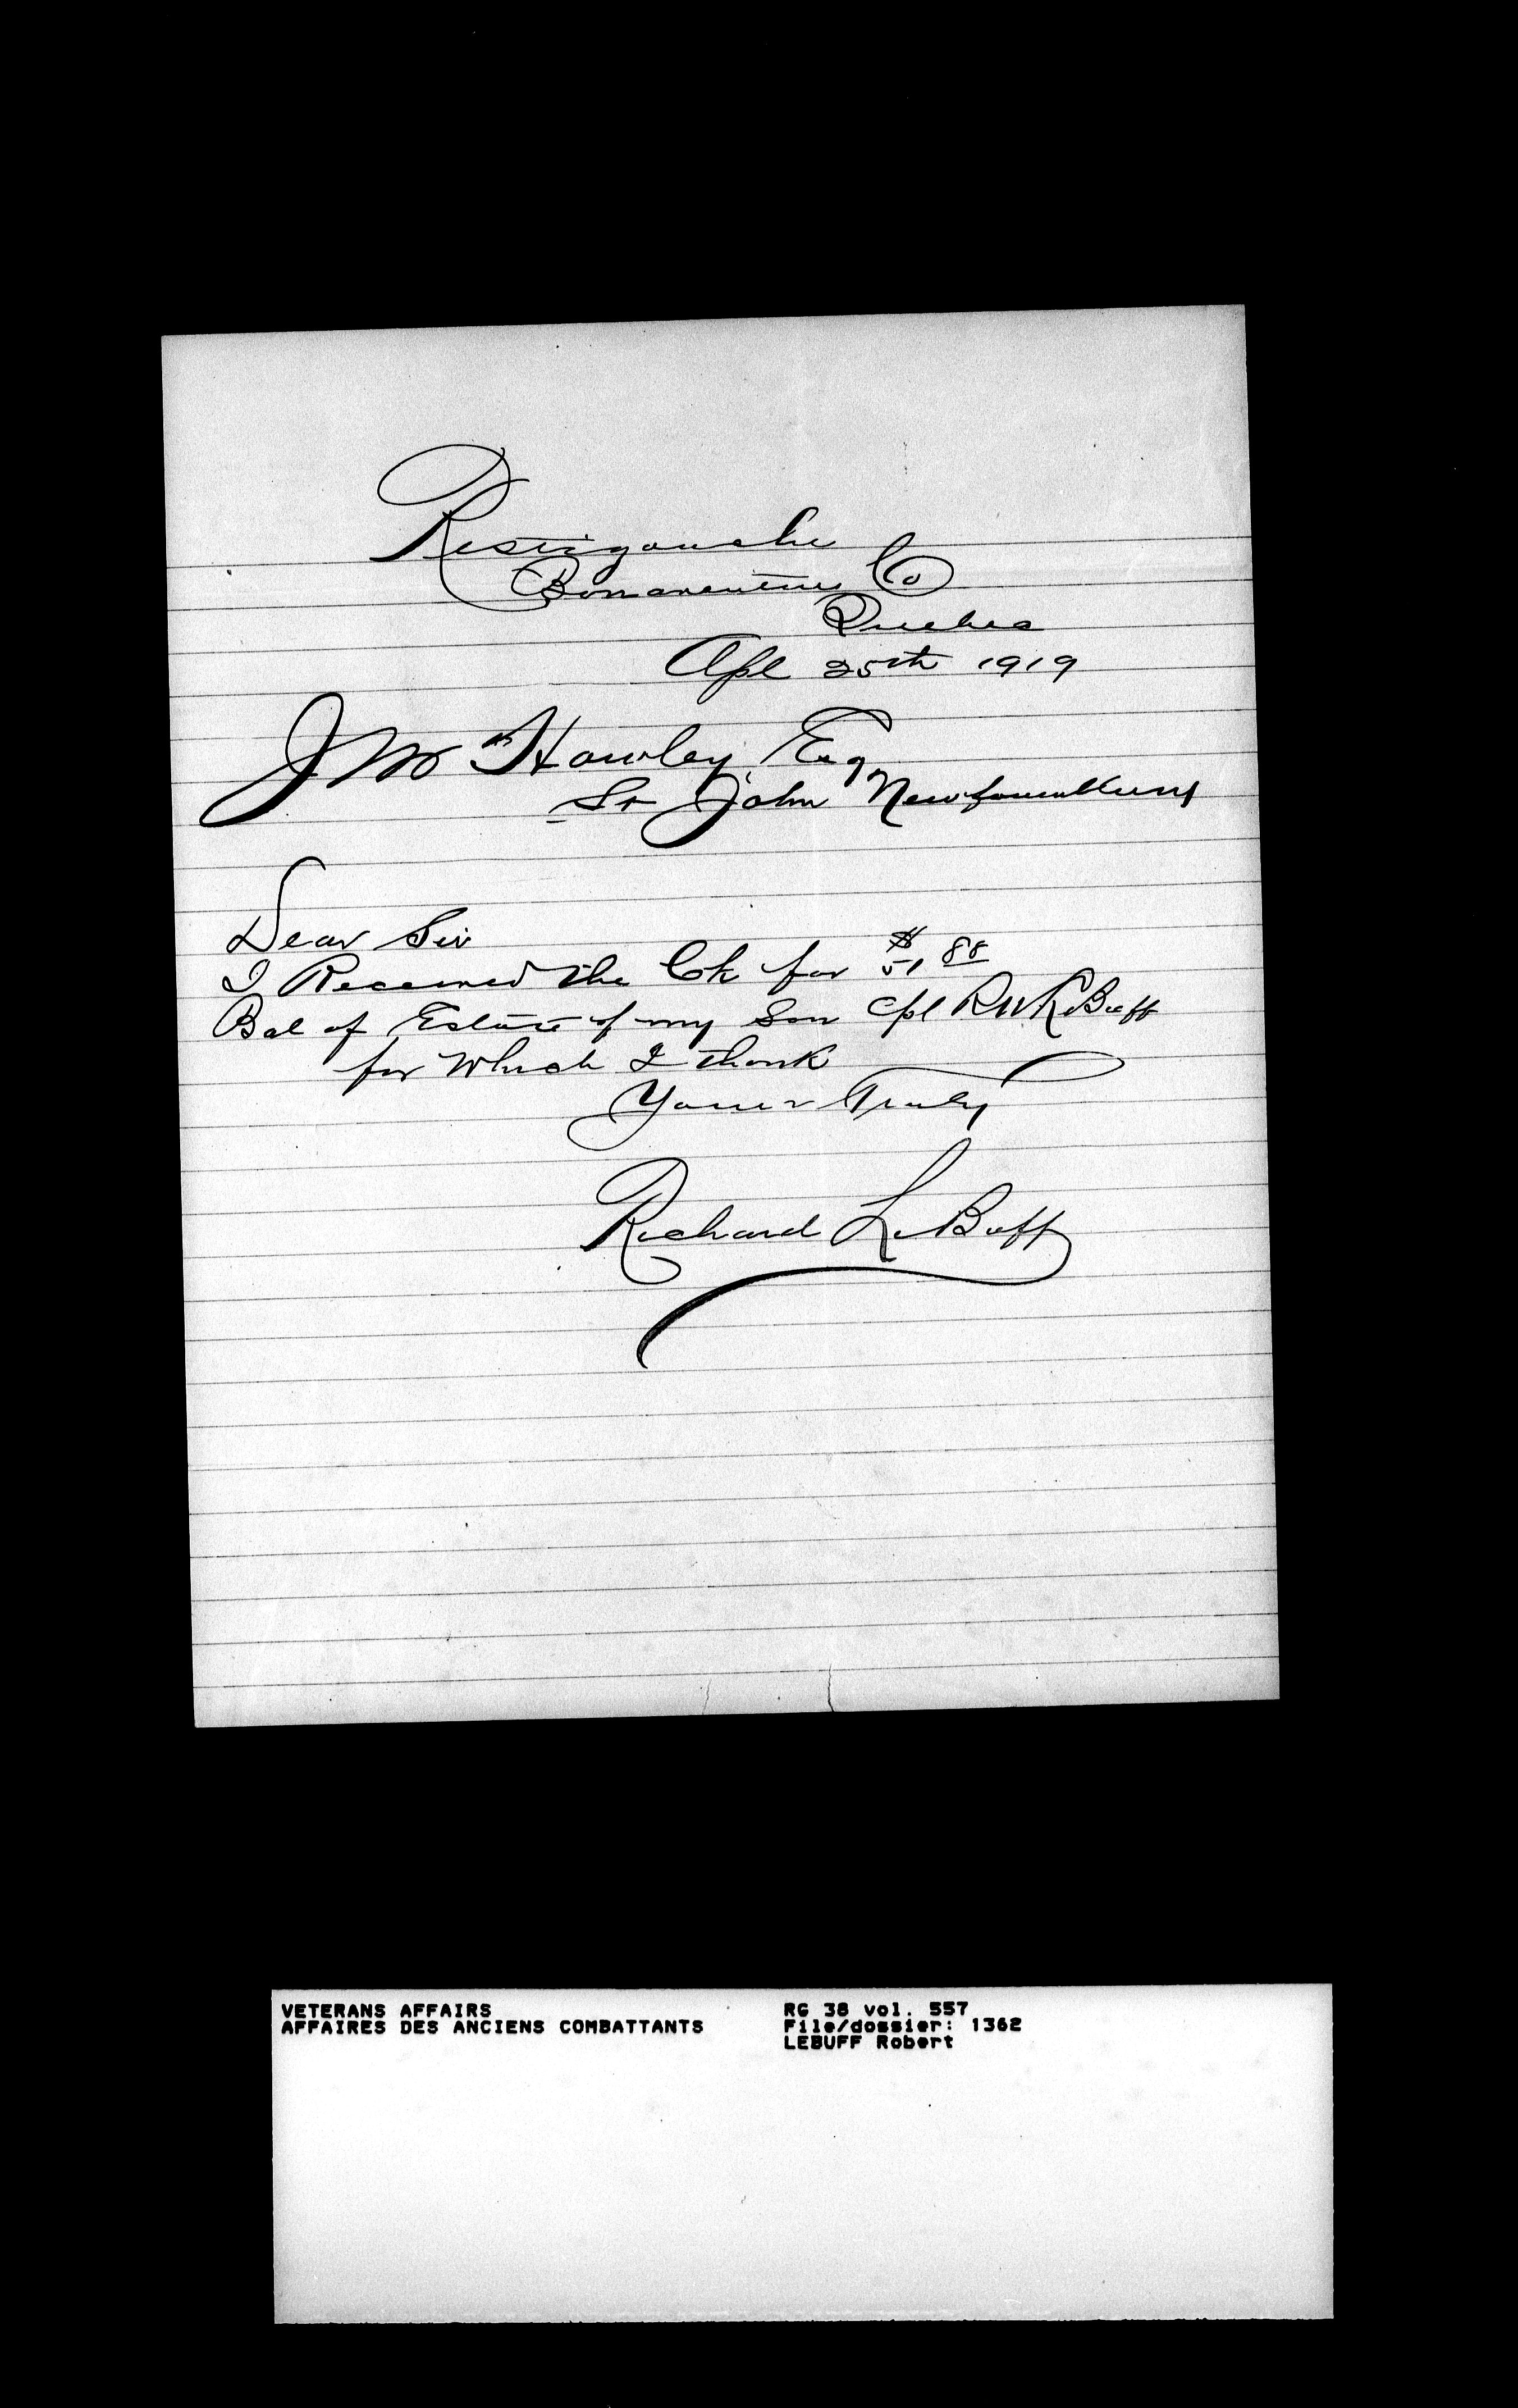 Restigouche
Bonaventure Co
Quebec
Apl 25th 1919
J M Howley Esq
St John Newfoundland
Dear Sir
I Received the Ck for $51.88
Bal of Estate of my Son Cpl R W LeBuff
for Which I thank
Yours Truly
Richard LeBuff
VETERANS AFFAIRS
AFFAIRES DES ANCIENS COMBATTANTS
RG 38 vol. 557
File/dossier: 1362
LEBUFF Robert